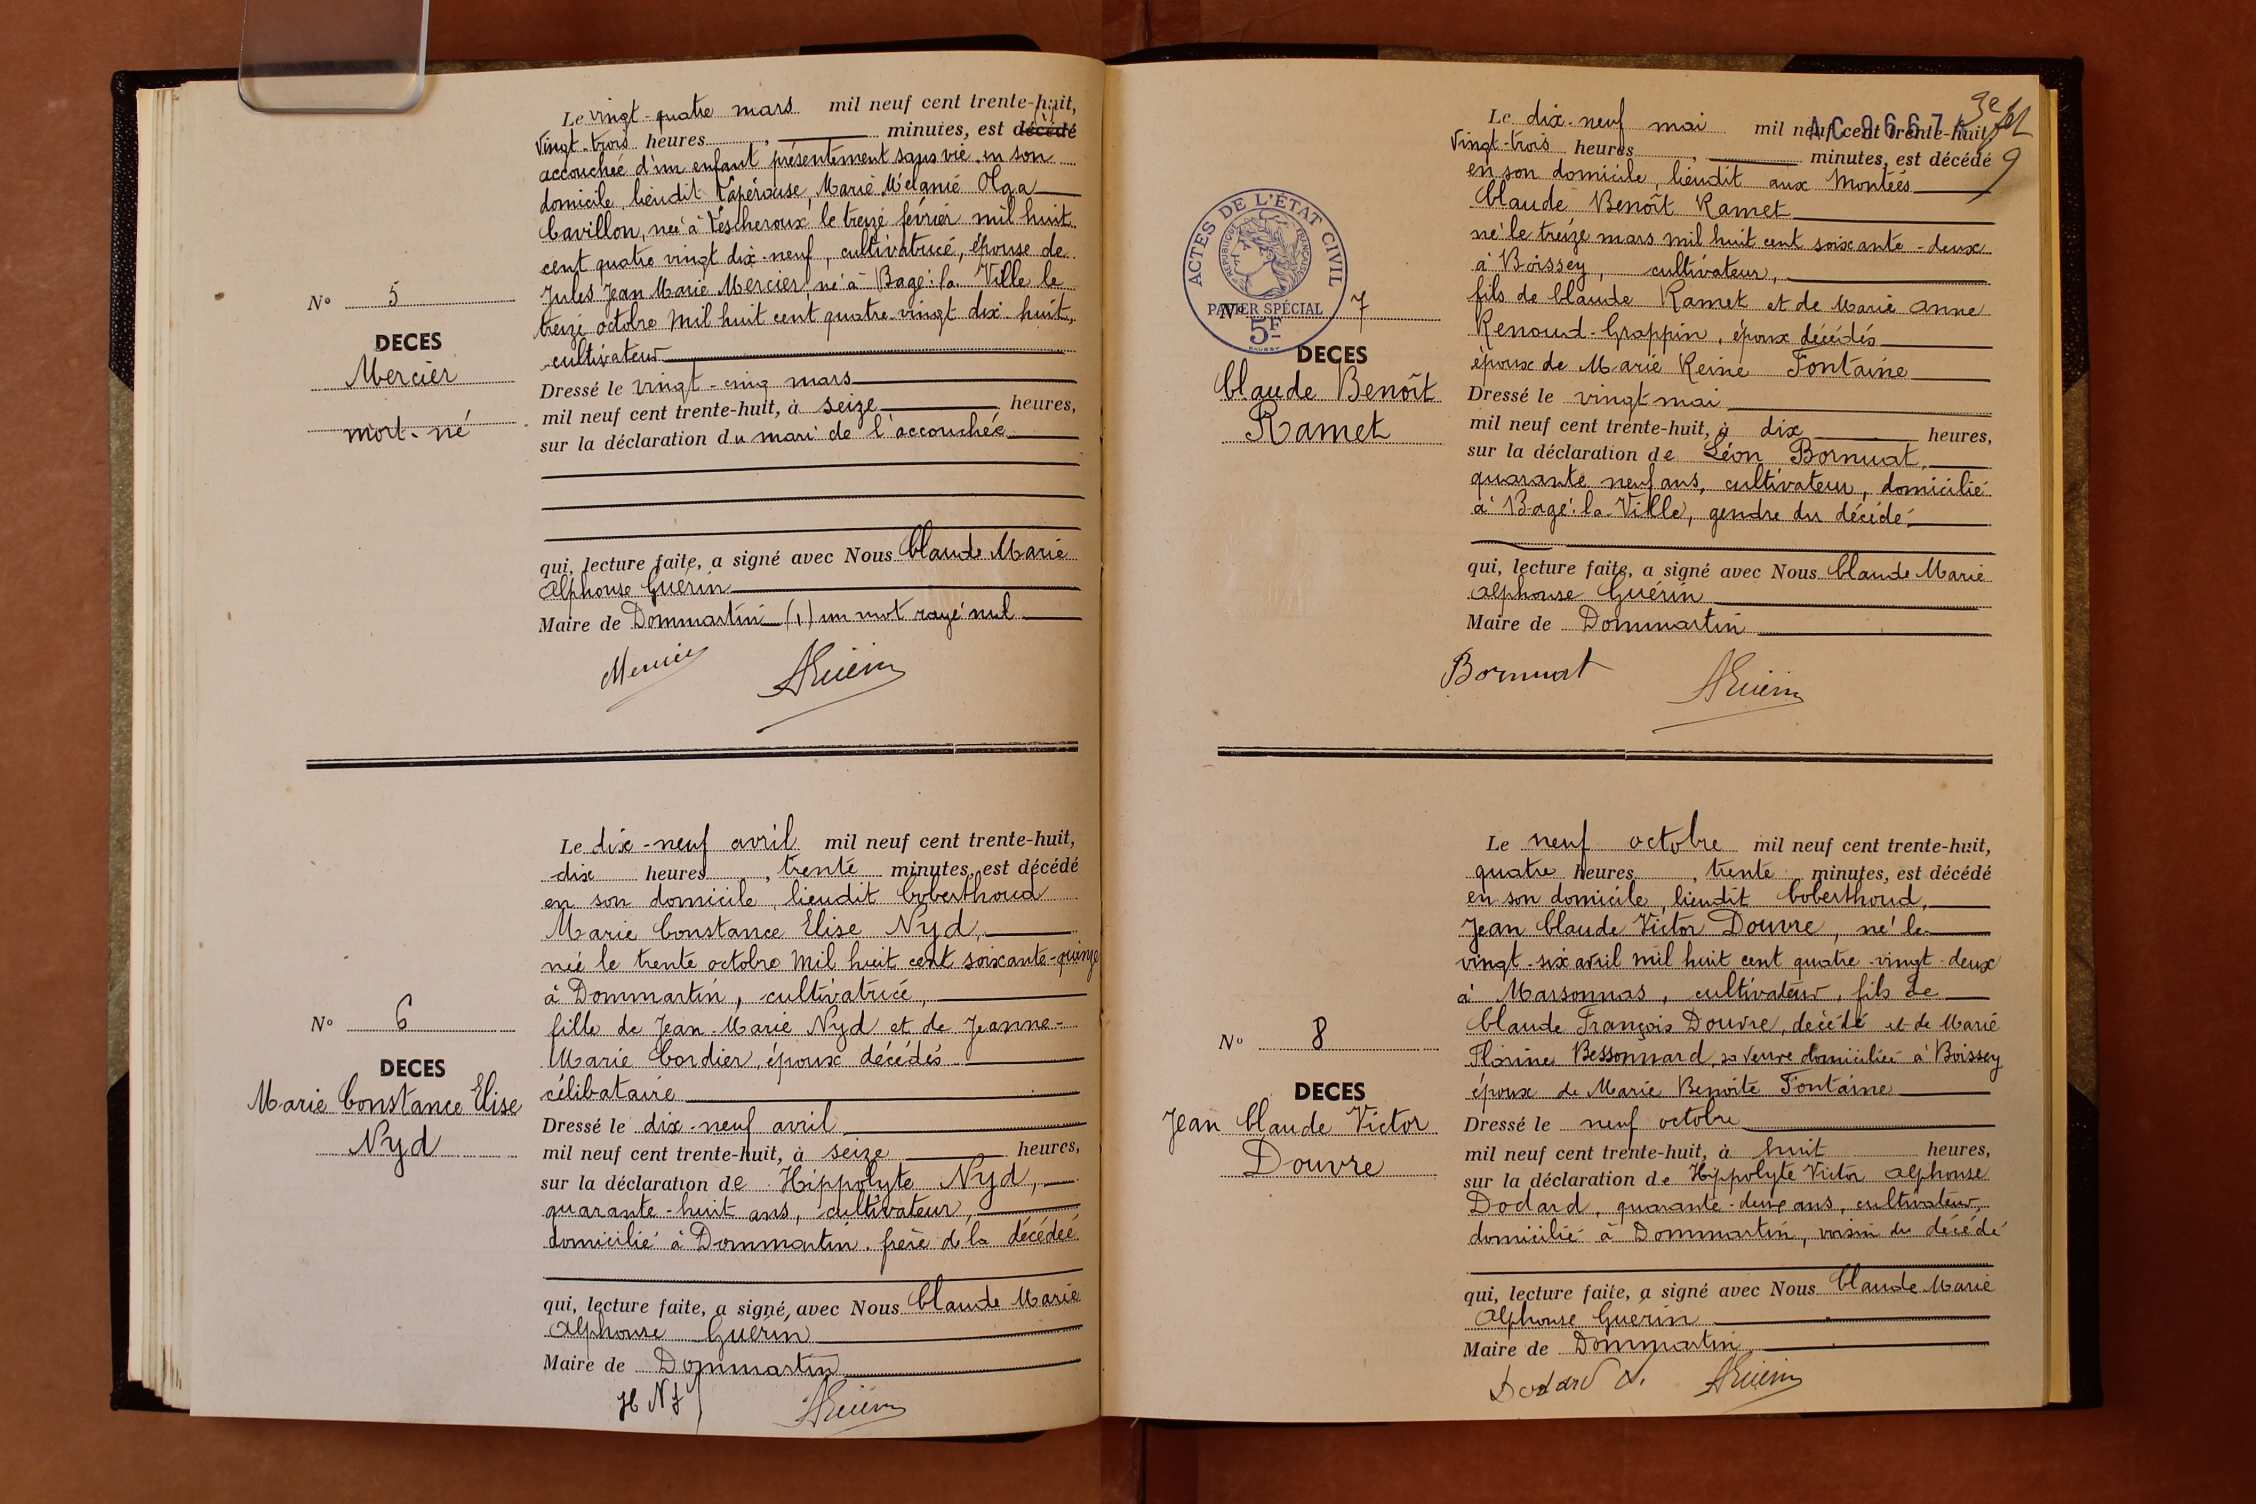 Le vingt-quatre mars mil neuf cent trente-huit,
vingt-trois heures, minutes, est décédé
accouchée d'un enfant présentement sans vie en son
domicile, lieudit Lapérouse, Marie Mélanie Olga
Cavillon, née à Lescheroux le treize février mil huit
cent quatre vingt dix-neuf, cultivatrice, épouse de
Jules Jean Marie Mercier, né à Bagé-la-Ville le
treize octobre mil huit cent quatre-vingt dix-huit,
cultivateur
N° 5
DECES
Mercier
mort-né
Dressé le vingt-cinq mars
mil neuf cent trente-huit, à seize heures,
sur la déclaration du mari de l'accouchée
qui, lecture faite, a signé avec Nous Claude Marie
Alphonse Guérin
Maire de Dommartin (1) un mot rayé nul
Mercier AGuérin
Le dix-neuf avril mil neuf cent trente-huit,
dix heures, trente minutes, est décédé
en son domicile, lieudit Coberthoud
Marie Constance Elise Nyd,
née le trente octobre mil huit cent soixante-quinze
à Dommartin, cultivatrice,
fille de Jean-Marie Nyd et de Jeanne-
Marie Cordier, époux décédés
célibataire
N° 6
DECES
Marie Constance Elise
Nyd
Dressé le dix-neuf avril
mil neuf cent trente-huit, à seize heures,
sur la déclaration de Hippolyte Nyd,
quarante-huit ans, cultivateur,
domicilié à Dommartin, frère de la décédée
qui, lecture faite, a signé, avec Nous Claude Marie
Alphonse Guérin
Maire de Dommartin
AGuérin
3e
9
Le dix-neuf mai mil neuf cent trente-huit,
vingt-trois heures, minutes, est décédé
en son domicile, lieudit aux Montées
Claude Benoît Ramet
né le treize mars mil huit cent soixante-deux
à Boissey, cultivateur,
fils de Claude Ramet et de Marie Anne
Renoud-Grappin, époux décédés
époux de Marie Reine Fontaine
ACTES DE L'ÉTAT CIVIL
RÉPUBLIQUE FRANÇAISE
PAPIER SPÉCIAL
5F
N° 7
DECES
Claude Benoît
Ramet
Dressé le vingt mai
mil neuf cent trente-huit, à dix heures,
sur la déclaration de Léon Bornuat,
quarante neuf ans, cultivateur, domicilié
à Bagé-la-Ville, gendre du décédé
qui, lecture faite, a signé avec Nous Claude Marie
Alphonse Guérin
Maire de Dommartin
Bornuat AGuérin
Le neuf octobre mil neuf cent trente-huit,
quatre heures, trente minutes, est décédé
en son domicile, lieudit Coberthoud,
Jean Claude Victor Douvre, né le
vingt-six avril mil huit cent quatre-vingt-deux
à Marsonnas, cultivateur, fils de
Claude François Douvre, décédé et de Marie
Florine Bessonnard, sa veuve domiciliée à Boissey
époux de Marie Benoite Fontaine
N° 8
DECES
Jean Claude Victor
Douvre
Dressé le neuf octobre
mil neuf cent trente-huit, à huit heures,
sur la déclaration de Hippolyte Victor Alphonse
Dodard, quarante-deux ans, cultivateur,
domicilié à Dommartin, voisin du décédé
qui, lecture faite, a signé avec Nous Claude Marie
Alphonse Guérin
Maire de Dommartin
Dodard AGuérin